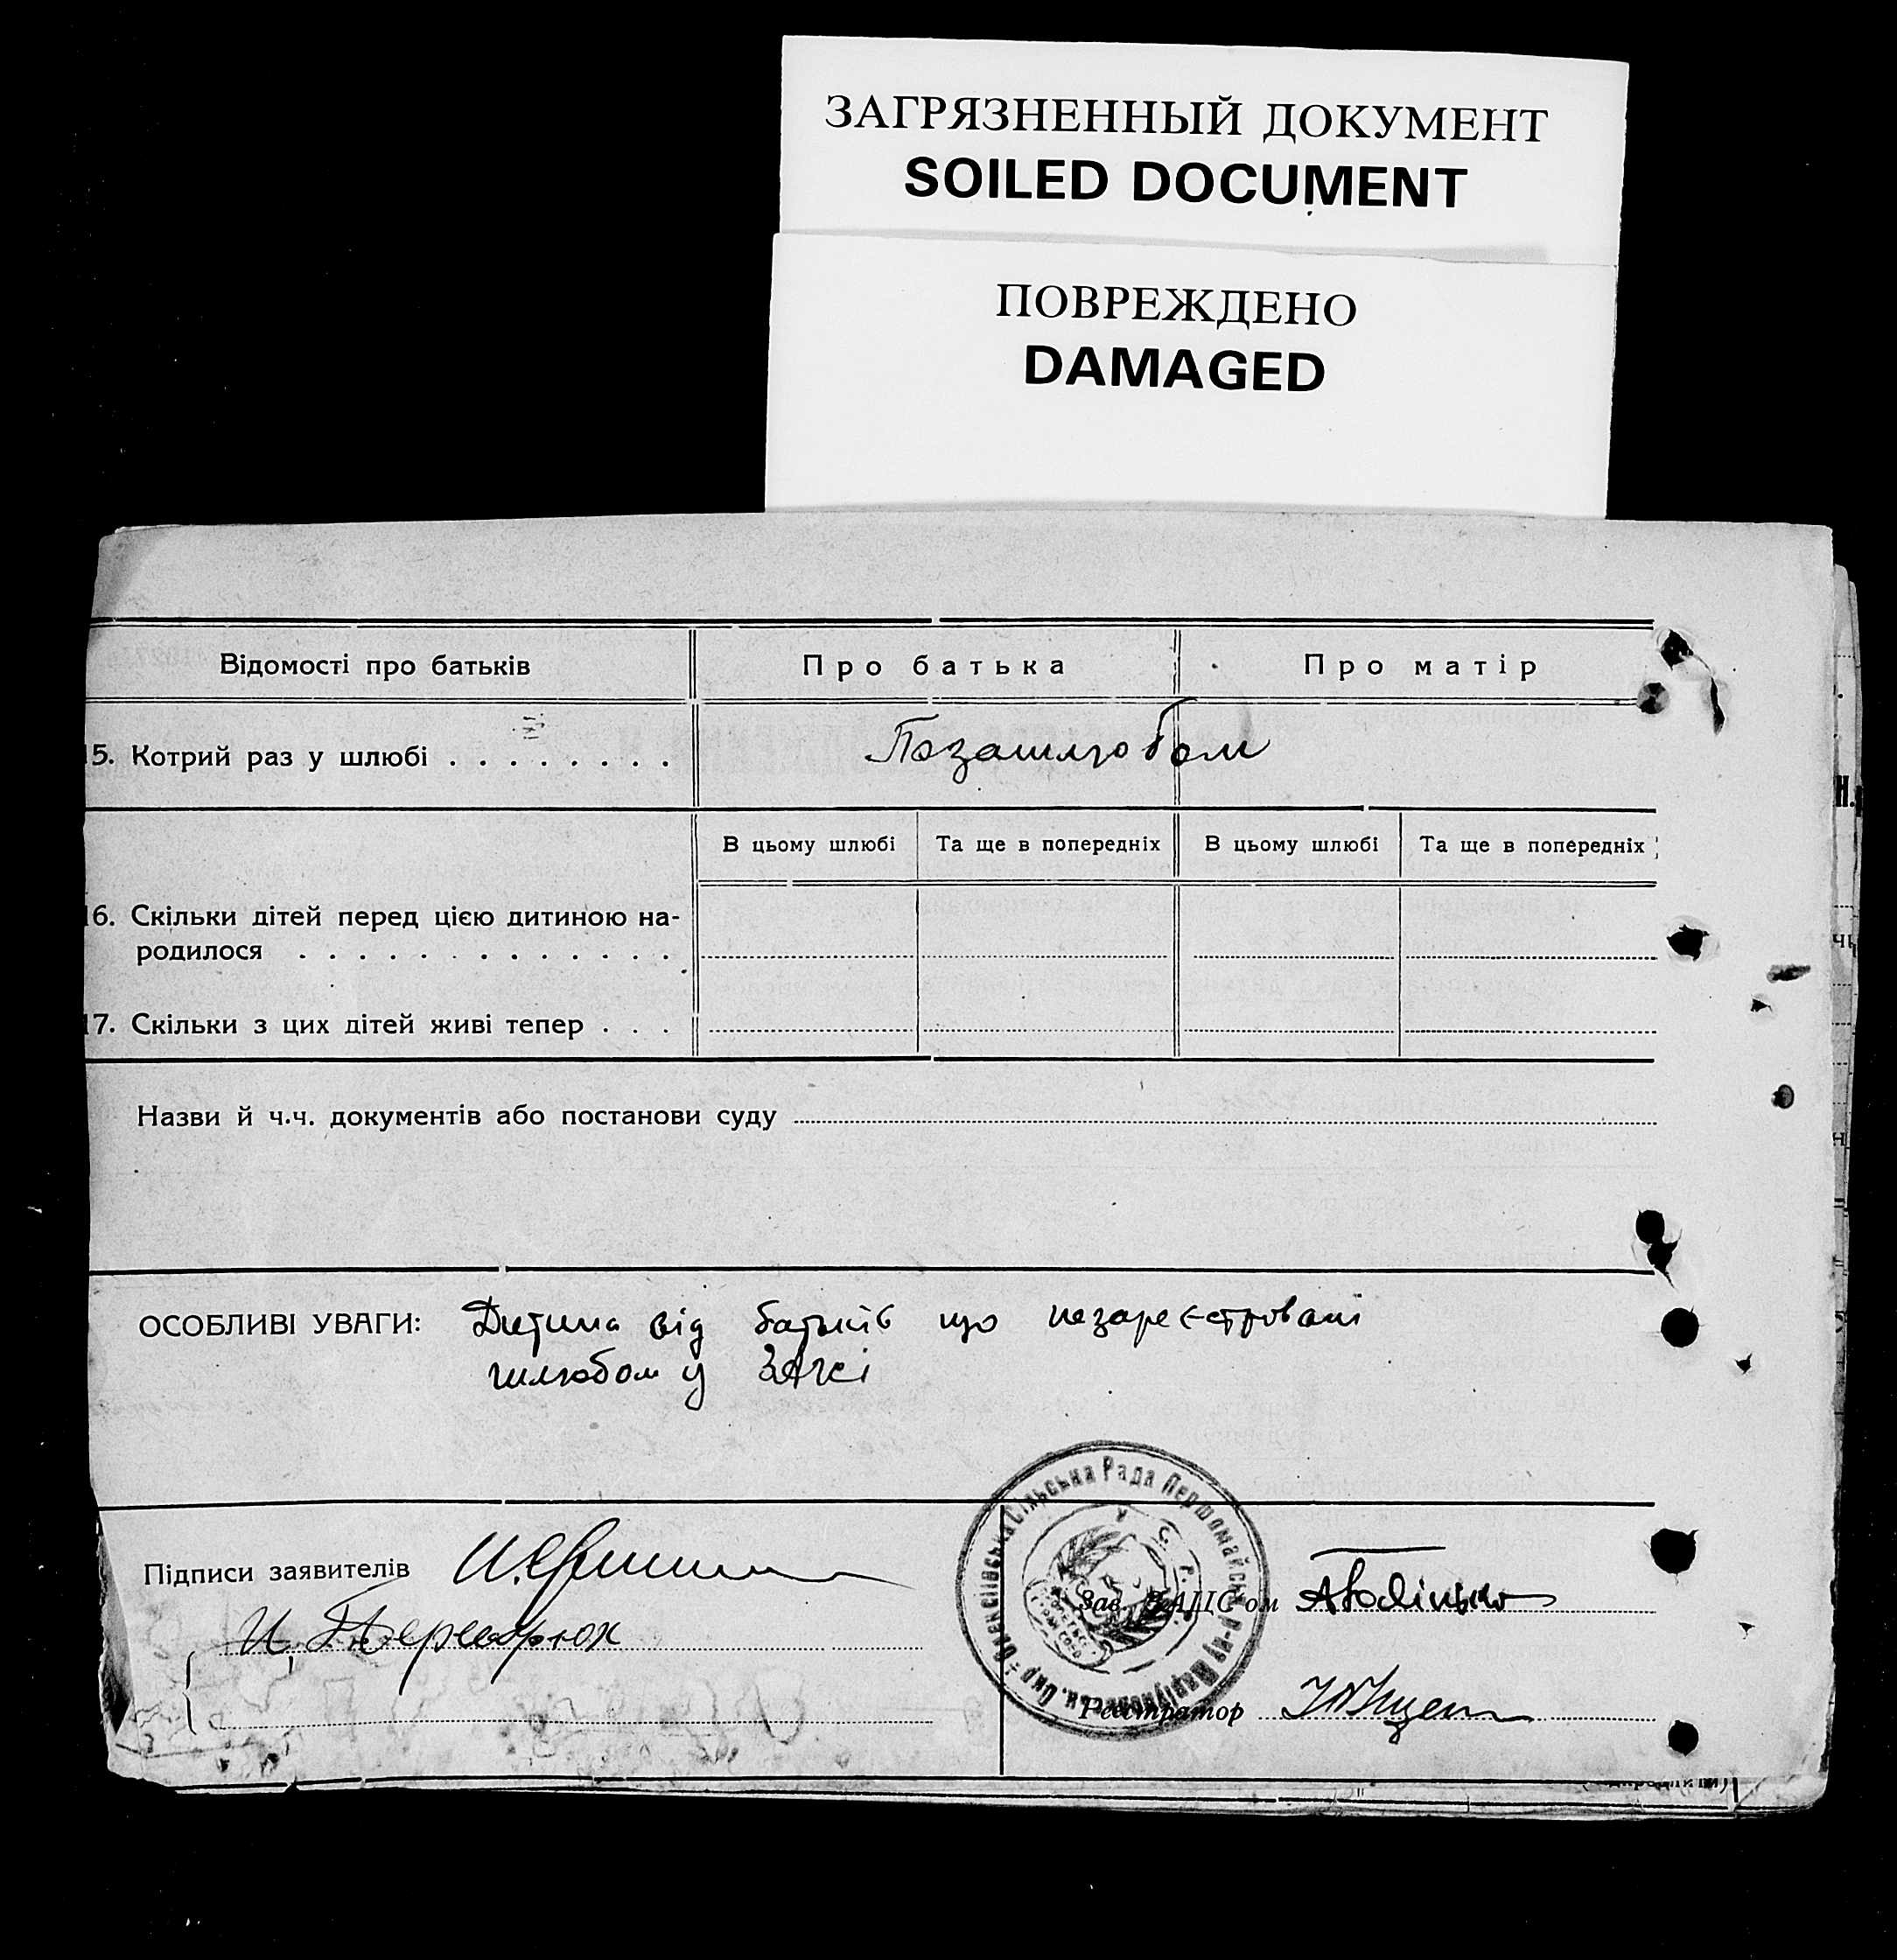 ЗАГРЯЗНЕННЫЙ ДОКУМЕНТ
SOILED DOCUMENT
ПОВРЕЖДЕНО
DAMAGED
Відомості про батьків
Про батька
Про матір
15. Котрий раз у шлюбі
Позашлюбом
В цьому шлюбі
Та ще в попередніх
В цьому шлюбі
Та ще в попередніх
16. Скільки дітей перед цією дитиною на-
родилося
17. Скільки з цих дітей живі тепер
Назви й ч.ч. документів або постанови суду
ОСОБЛИВІ УВАГИ: Дитина від батьків що незареєстровані
шлюбом у ЗАГСі
Підписи заявителів
Зав. ЗАЦС-ом
Реєстратор
Олексіївська Сільська Рада Першомайськ. р-ну Маріупольськ. Окр.